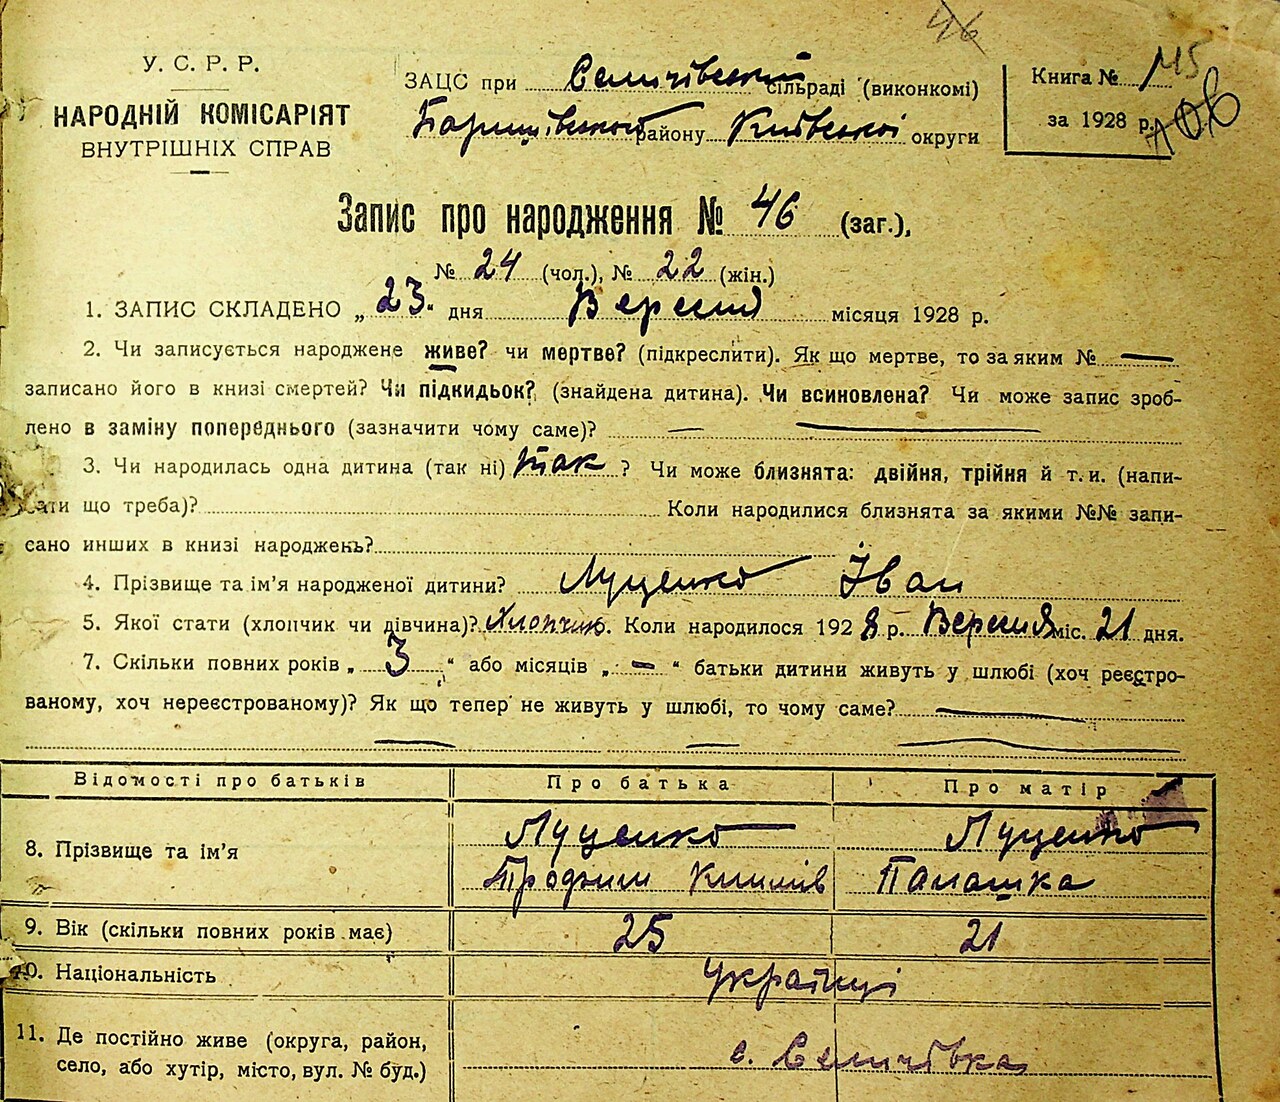 46
У. С. Р. Р.
НАРОДНІЙ КОМІСАРІЯТ
ВНУТРІШНІХ СПРАВ
ЗАЦС при Селичівській сільраді (виконкомі)
Баришівського району Київської округи
Книга № 115
за 1928 р.
106
Запис про народження № 46 (заг.),
№ 24 (чол.), № 22 (жін.)
1. ЗАПИС СКЛАДЕНО „ 23 “ дня Вересня місяця 1928 р.
2. Чи записується народжене живе? чи мертве? (підкреслити). Як що мертве, то за яким № —
записано його в книзі смертей? Чи підкидьок? (знайдена дитина). Чи всиновлена? Чи може запис зроб-
лено в заміну попереднього (зазначити чому саме)? —
3. Чи народилась одна дитина (так ні) так ? Чи може близнята: двійня, трійня й т. и. (напи-
сати що треба)? Коли народилися близнята за якими №№ запи-
сано инших в книзі народжень?
4. Прізвище та ім’я народженої дитини? Луценко Іван
5. Якої стати (хлопчик чи дівчина)? Хлопчик. Коли народилося 1928 р. Вересня міс. 21 дня.
7. Скільки повних років „ 3 “ або місяців „ — “ батьки дитини живуть у шлюбі (хоч реєстро-
ваному, хоч нереєстрованому)? Як що тепер не живуть у шлюбі, то чому саме? —
Відомості про батьків Про батька Про матір
8. Прізвище та ім’я Луценко Луценко
Климів Палашка
9. Вік (скільки повних років має) 25 21
10. Національність Українці
11. Де постійно живе (округа, район,
село, або хутір, місто, вул. № буд.) с. Селичівка